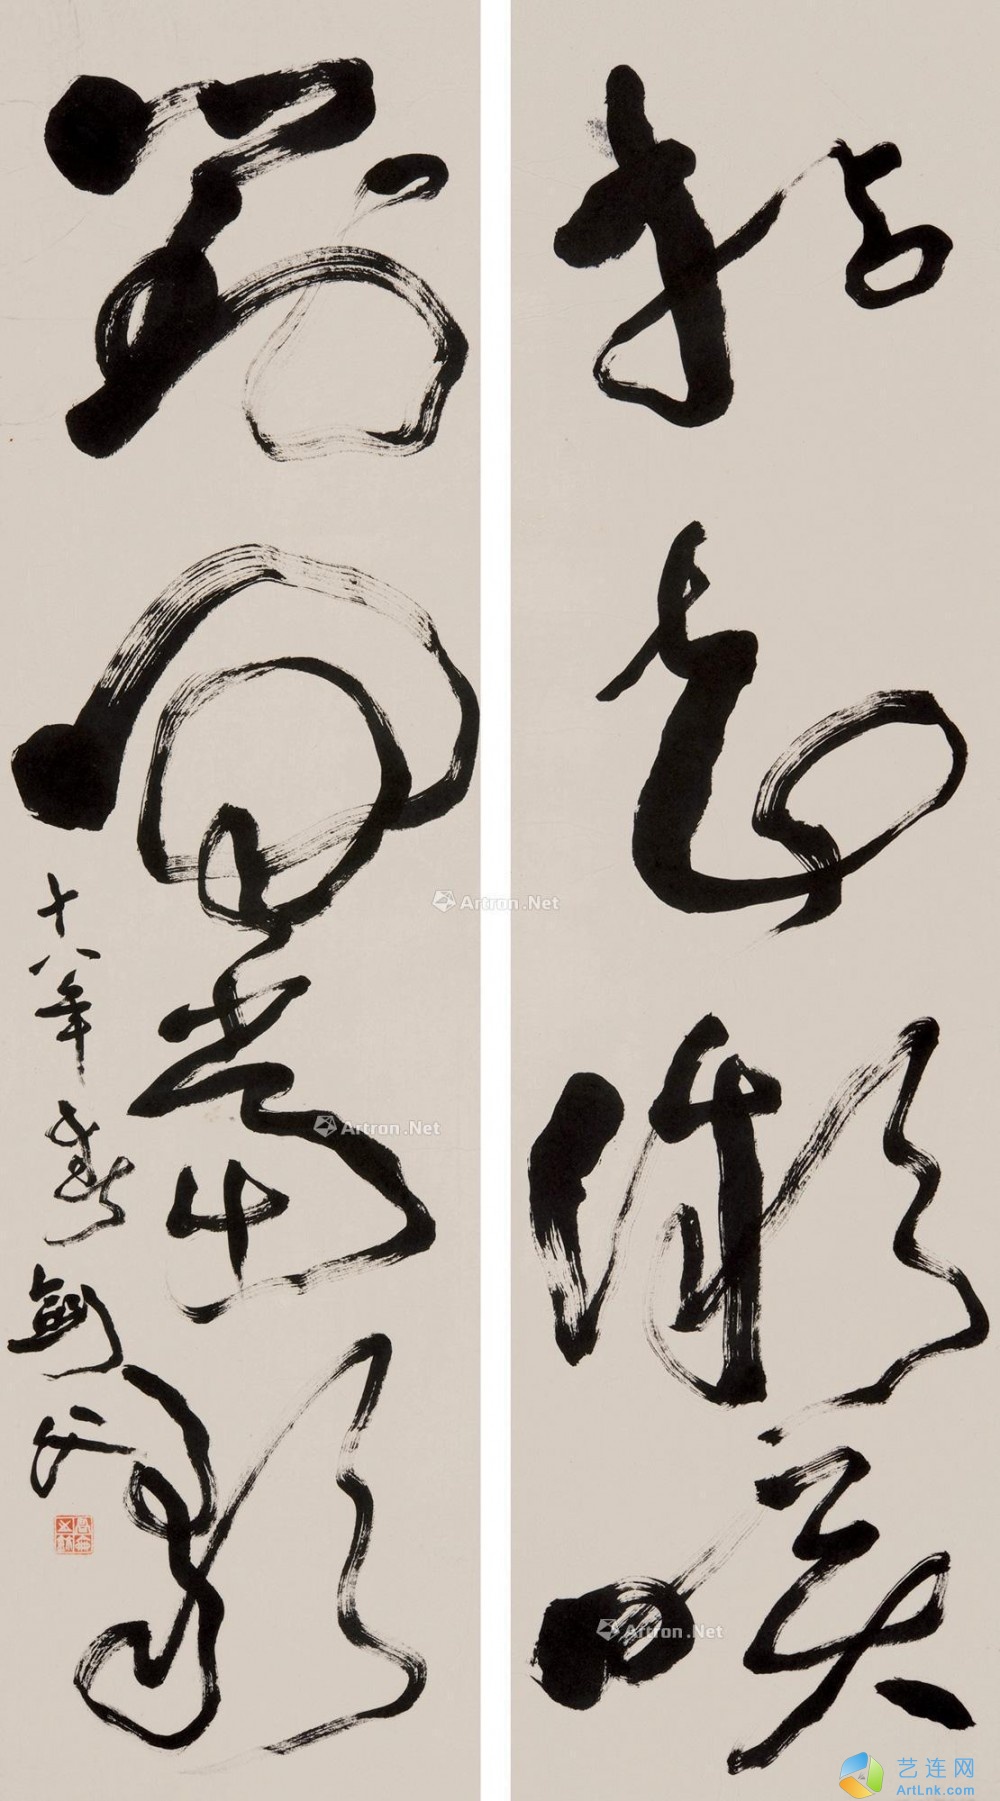 拈花微咲
對酒當歌
十八年春劍父
Artron.Net
Artron.Net
Artron.Net
艺连网
ArtLnk.com